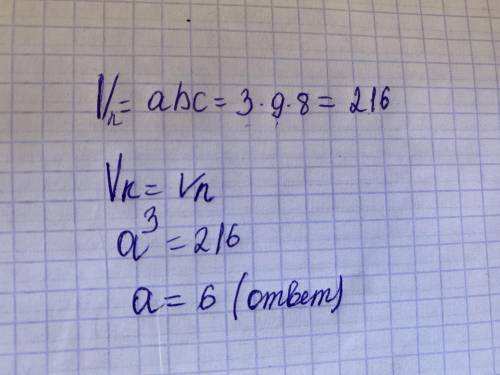 Vп = abc = 3 · 9 · 8 = 216
Vк = Vп
a³ = 216
a = 6 (ответ)